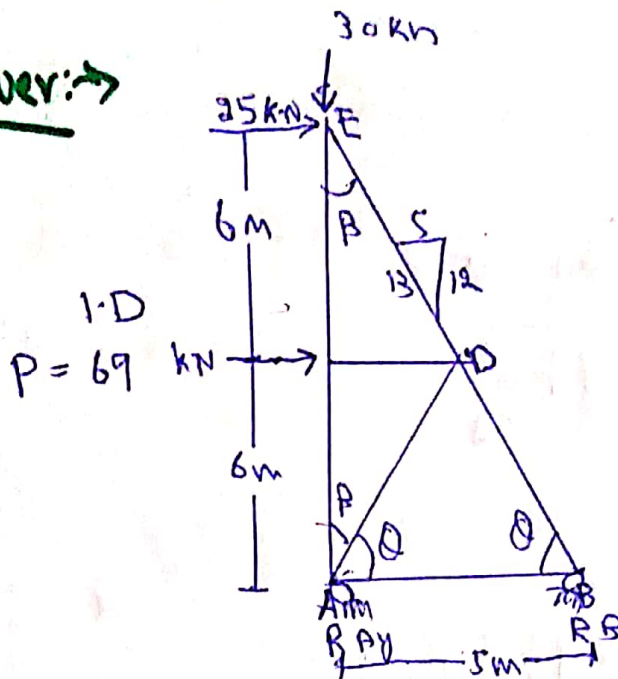 wer:→
30kn
25kN
E
6m
β
5
13
12
1·D
P = 69 kN
D
6m
β
θ
θ
A
B
R Ay
R B
5m